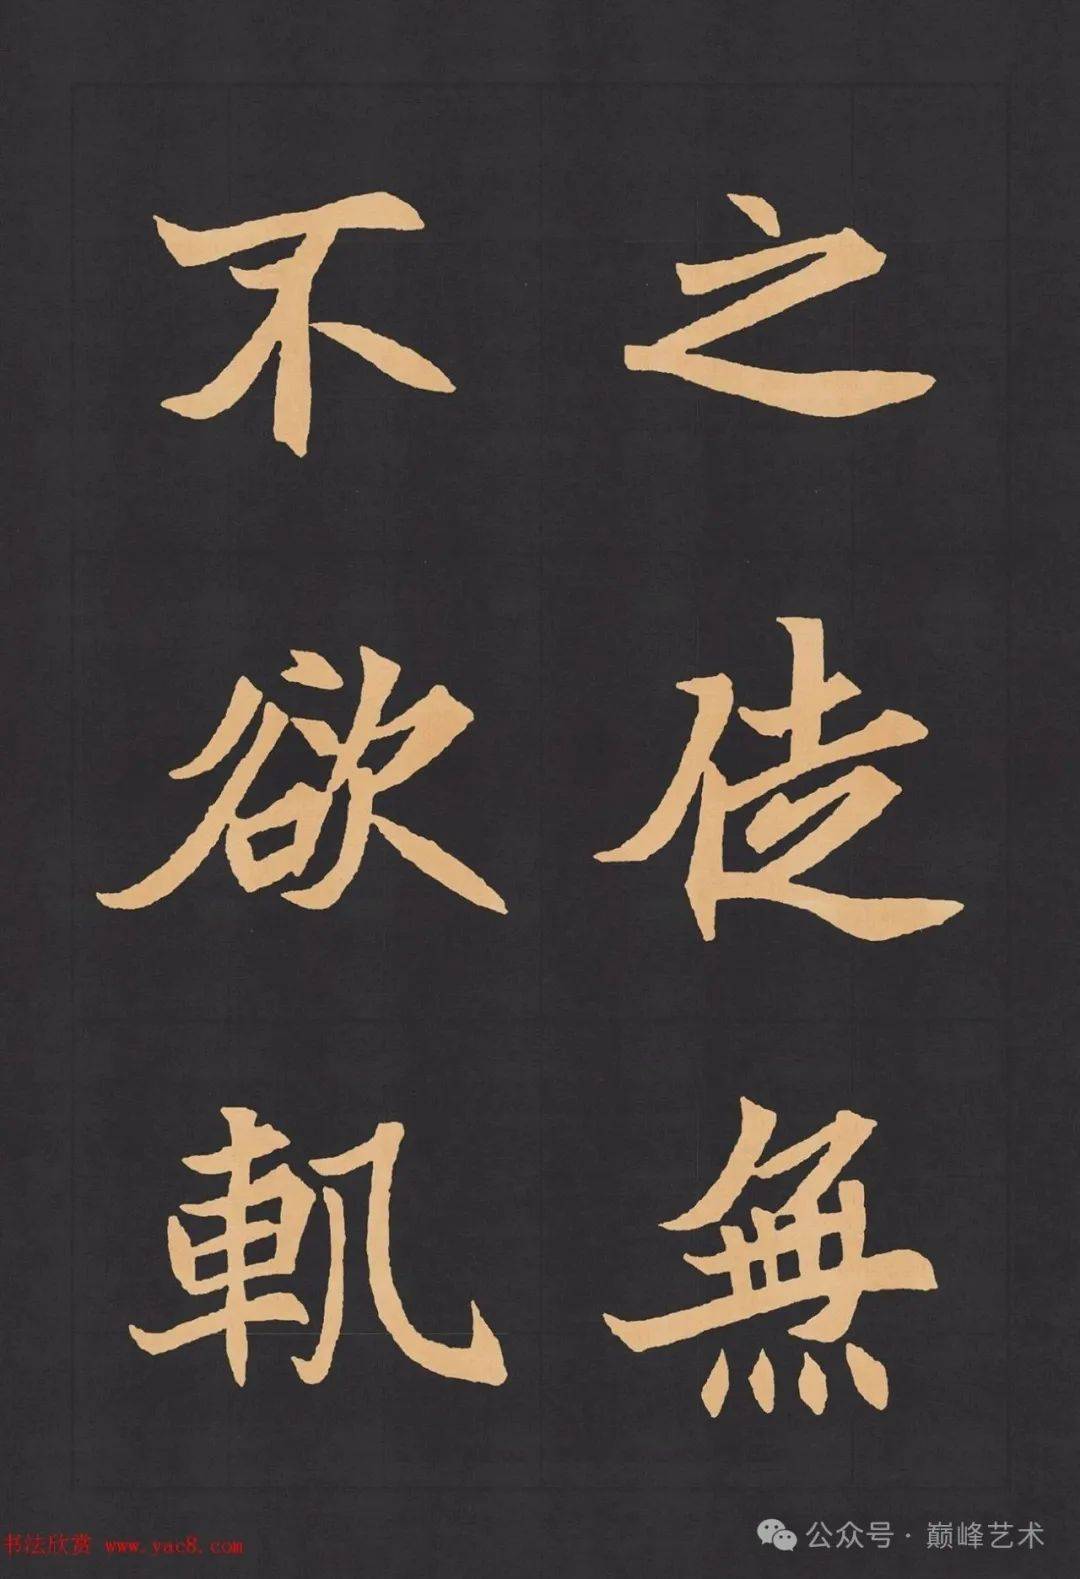 之徒無
不欲軌
书法欣赏 www.yac8.com
公众号 · 巅峰艺术